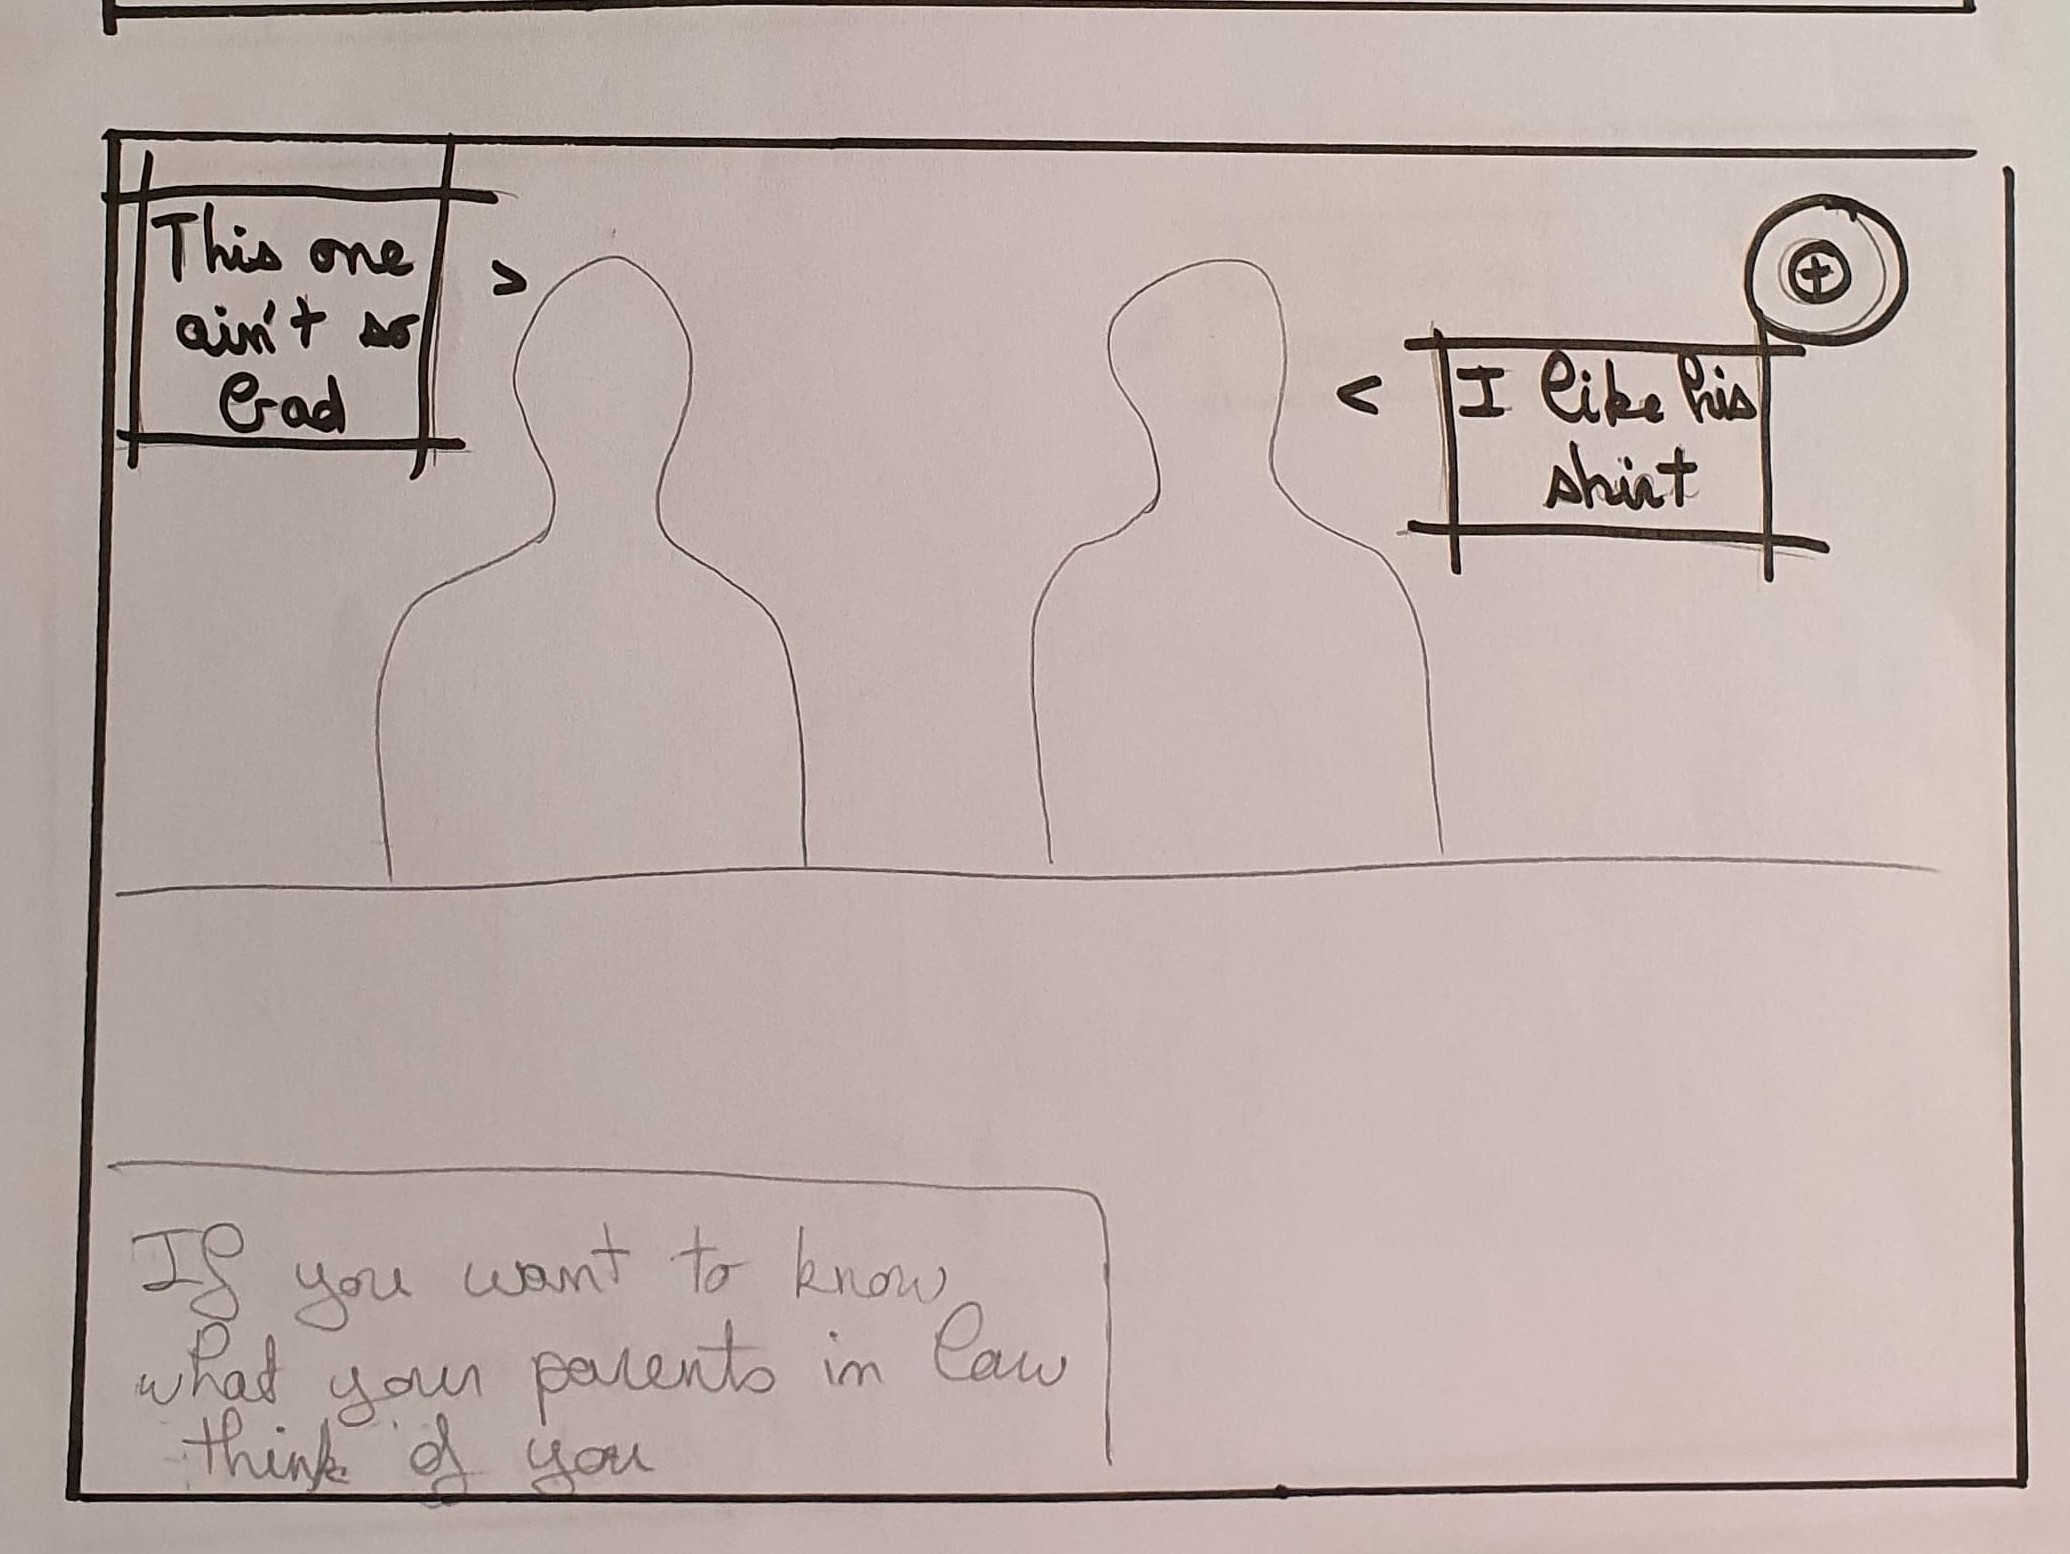 This one
ain't so
bad
>
<
I like his
shirt
If you want to know
what your parents in law
think of you